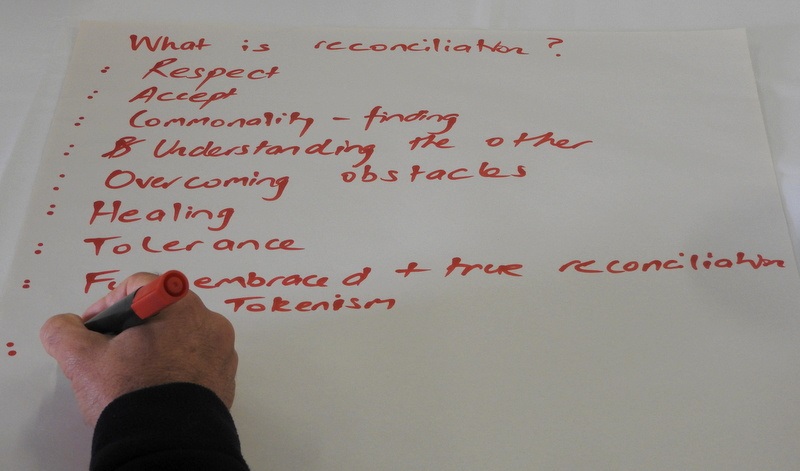 What is reconciliation?
: Respect
: Accept
: Commonality - finding
: Understanding the other
: Overcoming obstacles
: Healing
: Tolerance
: embraced + true reconciliation
Tokenism
: